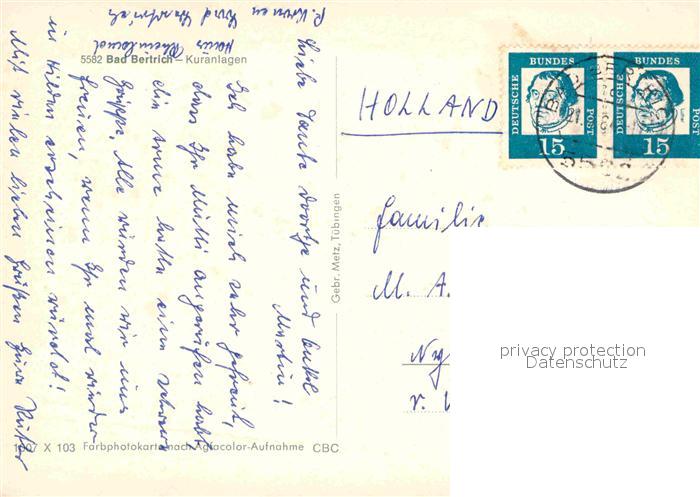 P. Kronen
Haus Rheinland
5582 Bad Bertrich – Kuranlagen
Liebe Tante Doortje und Onkel
Martin!
Ich habe mich sehr gefreut,
dass Ihr Mutti angerufen habt,
die arme hatte eine schwere
Grippe. Alle würden wir uns
freuen, wenn Ihr mal wieder
in Hilden erscheinen würdet!
Mit vielen lieben Grüßen Eure
Gebr. Metz, Tübingen
1007 X 103 Farbphotokarte nach Agfacolor-Aufnahme CBC
HOLLAND
DEUTSCHE BUNDES POST 15
DEUTSCHE BUNDES POST 15
Familie
M. A.
privacy protection
Datenschutz